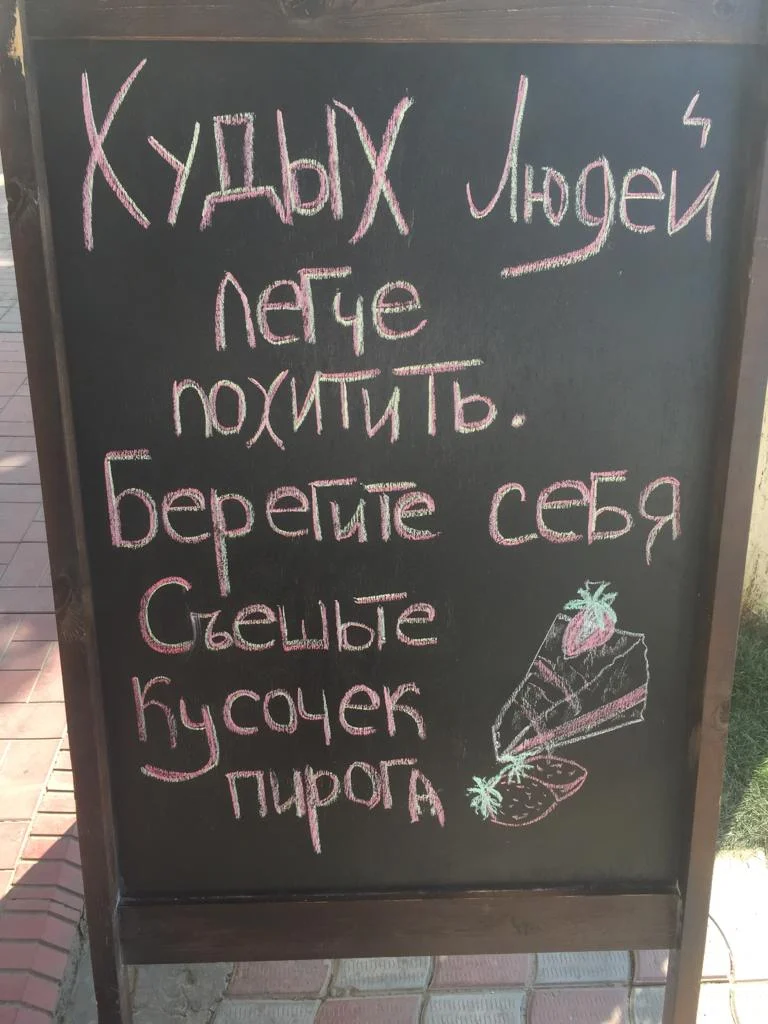 Худых людей
легче
похитить.
Берегите себя
Съешьте
Кусочек
пирога